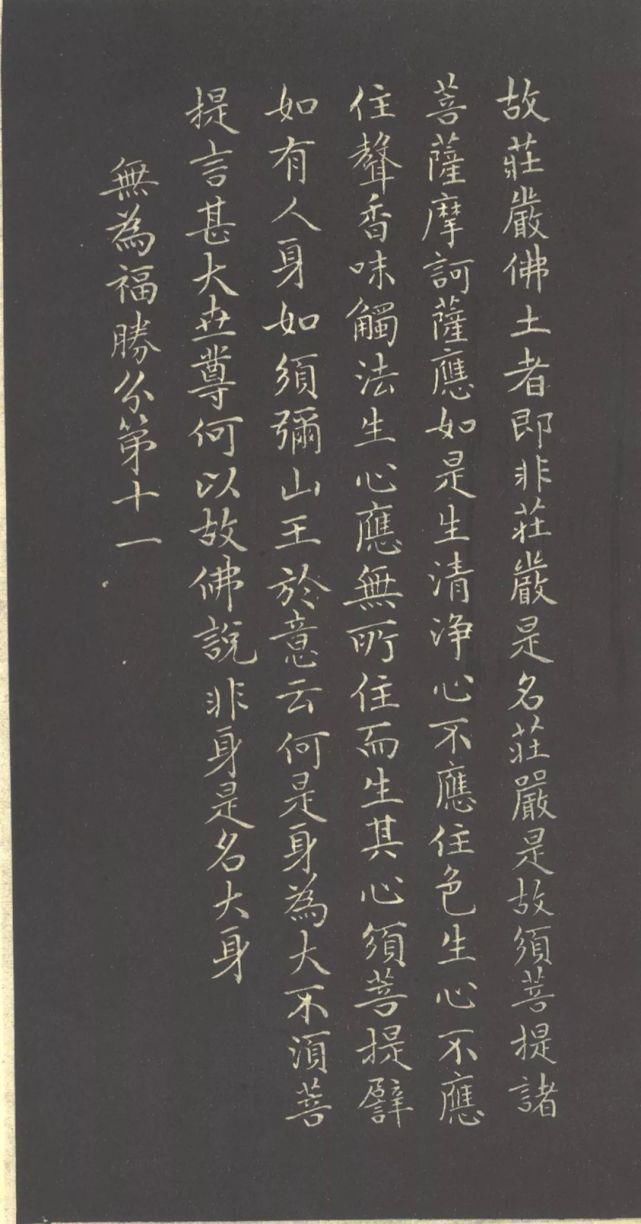 故莊嚴佛土者即非莊嚴是名莊嚴是故須菩提諸
菩薩摩訶薩應如是生清淨心不應住色生心不應
住聲香味觸法生心應無所住而生其心須菩提譬
如有人身如須彌山王於意云何是身為大不須菩
提言甚大世尊何以故佛說非身是名大身
無為福勝分第十一